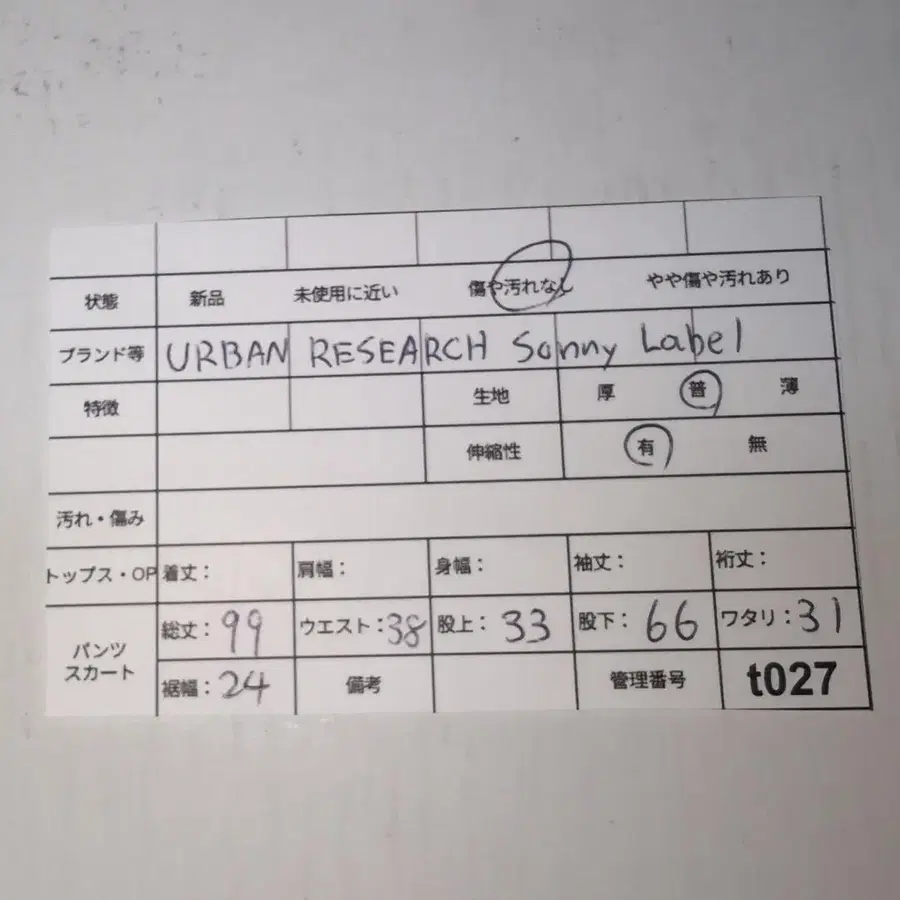 状態 新品 未使用に近い 傷や汚れなし やや傷や汚れあり
ブランド等 URBAN RESEARCH Sonny Label
特徴 生地 厚 普 薄
伸縮性 有 無
汚れ・傷み
トップス・OP 着丈： 肩幅： 身幅： 袖丈： 裄丈：
パンツ スカート 総丈：99 ウエスト：38 股上：33 股下：66 ワタリ：31
裾幅：24 備考 管理番号 t027